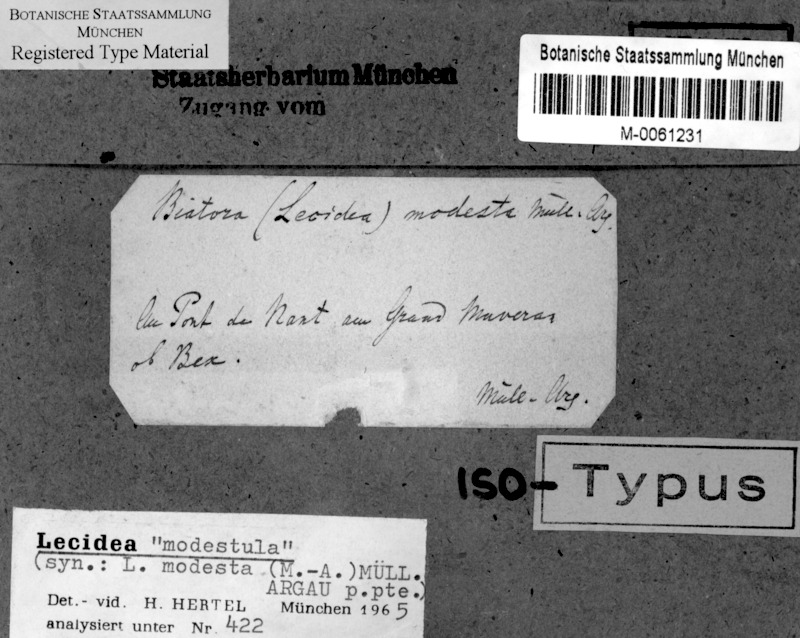 BOTANISCHE STAATSSAMMLUNG
MÜNCHEN
Registered Type Material
Staatsherbarium München
Zugang vom
Botanische Staatssammlung München
M-0061231
Biatora (Lecidea) modesta Müll. Arg.
Au Pont de Nant au Grand Muveran
ob Bex.
Müll. Arg.
ISO- Typus
Lecidea "modestula"
(syn.: L. modesta (M.-A.)MÜLL.
ARGAU p.pte.)
Det.- vid. H. HERTEL München 1965
analysiert unter Nr. 422